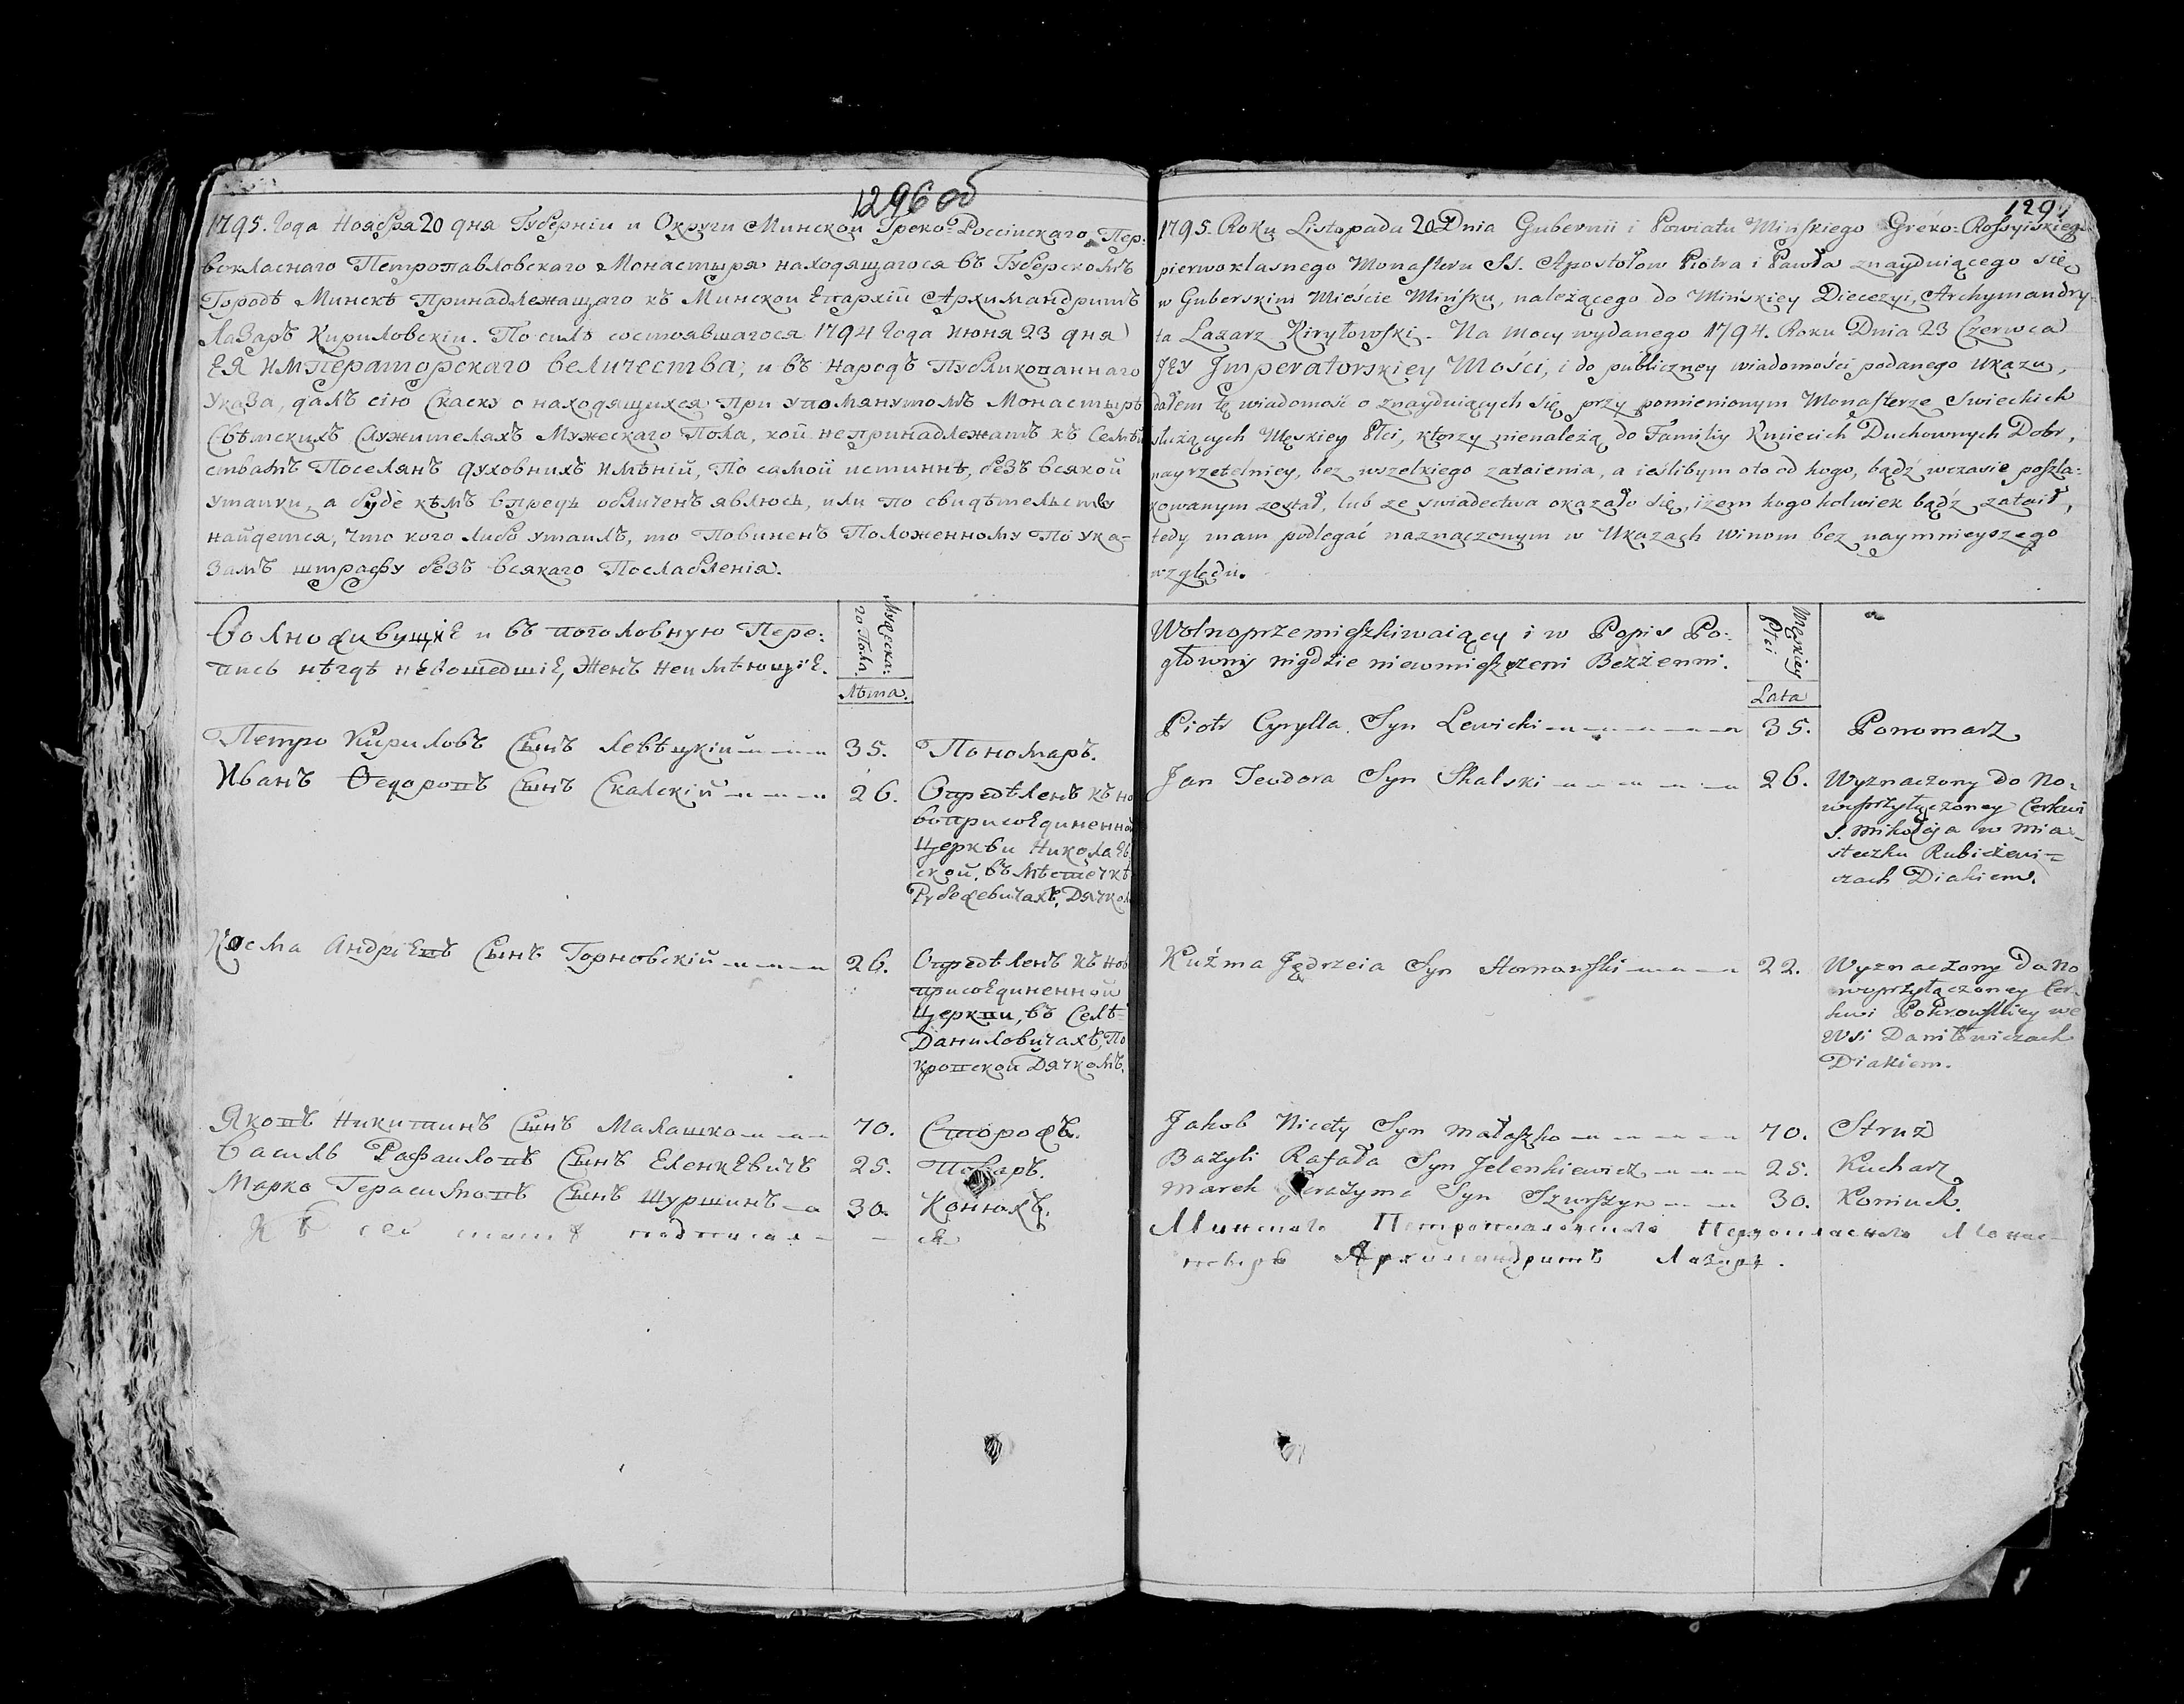 1296 об
1795. Года Ноября 20 дня Губерніи и Округи Минской Греко-Россійскаго Пер:
вокласнаго Петропавловскаго Монастыря находящагося въ Губерскомъ
Городѣ Минскѣ Принадлежащаго къ Минской Епархіи Архимандритъ
Лазаръ Кириловскій. По силѣ состоявшагося 1794 Года Июня 23 дня
ЕЯ ИМПЕраторскаго величества, и въ народъ Публикованнаго
Указа, далъ сію Скаску о находящихся При упомянутомъ Монастырѣ
Свѣтскихъ Служителяхъ Мужескаго Пола, кои непринадлежатъ къ Семей
ствамъ Поселянъ духовныхъ имѣній, По самой истиннѣ, безъ всякой
утайки, а буде кѣмъ впредь обличенъ явлюсь, или по свидѣтельству
найдется, что кого либо утаилъ, то Повиненъ Положенному По ука-
замъ штрафу безъ всякаго Послабленія.
Волноживущіе и въ поголовную Пере:
пись нѣгдѣ невошедшіе, Женъ неимѣющіе.
Мужеска:
го Пола.
Лѣта.
Петро Кириловъ Сынъ Левѣцкій 35. Пономаръ.
Иванъ Ѳедоровъ Сынъ Скалскій 26. Опредѣленъ къ но
воприсоединенной
Церкви Николаев
ской, въ мѣстечкѣ
Рубежевичахъ, Дячком
Косма Андріевъ Сынъ Горновскій 26. Опредѣленъ къ нов
присоединенной
Церкви, въ Селѣ
Даниловичахъ, По
кровской Дячкомъ.
Яковъ Никитинъ Сынъ Малашко 70. Сторожъ.
Василь Рафаиловъ Сынъ Еленкевичъ 25. Поваръ.
Марко Герасимовъ Сынъ Шуршинъ 30. Конюхъ.
Къ сей подписал-
ся
1297
1795. Roku Listopadu 20 Dnia Gubernii i Powiatu Mińskiego Gréko=Rossyiskiego
pierwoklasnego Monasteru SS. Apostołow Piotra i Pawła znayduiącego się
w Guberskim Mieście Mińsku, należącego do Mińskiey Diecezyi, Archymandry:
ta Lazarz Kiryłowski. Na mocy wydanego 1794. Roku Dnia 23 Czerwca
JEY Imperatorskiey Mości, i do publiczney wiadomości podanego ukazu,
dałem tę wiadomość o znayduiących się przy pomienionym Monasterze Swieckich
służących Męskiey Płci, ktorzy nienależą do Familiy Kmiecich Duchownych Dobr,
nayrzetelniey, bez wszelkiego zataienia, a ieślibym oto od kogo, bądź wczasie poszla:
kowanym został, lub ze swiadectwa okazało się, iżem kogo kolwiek bądź zataił,
tedy mam podlegać naznaczonym w Ukazach Winom bez naymnieyszego
względu.
Wolnoprzemieszkiwaiący i w Popis Po:
głowny nigdzie niewmieszczeni Bezżenni.
Męskiey
Płci
Lata
Piotr Cyrylla Syn Lewicki 35. Ponomarz
Jan Teodora Syn Skalski 26. Wyznaczony do No:
woprzyłączoney Cerkwi
S. Mikołaja w mia-
steczku Rubieżewi-
czach Diakiem.
Kuźma Jędrzeia Syn Hornowski 22. Wyznaczony do No
woprzyłączoney Cer-
kwi Pokrowskiey we
Wsi Daniłowiczach
Diakiem.
Jakob Nicety Syn Małaszko 70. Struż
Bazyli Rafała Syn Jelenkiewicz 25. Kucharz
Marek Gerazyma Syn Szurszyn 30. Koniuch.
Минскаго Петропавловскаго Первокласнаго Монас-
тыря Архимандритъ Лазарь.